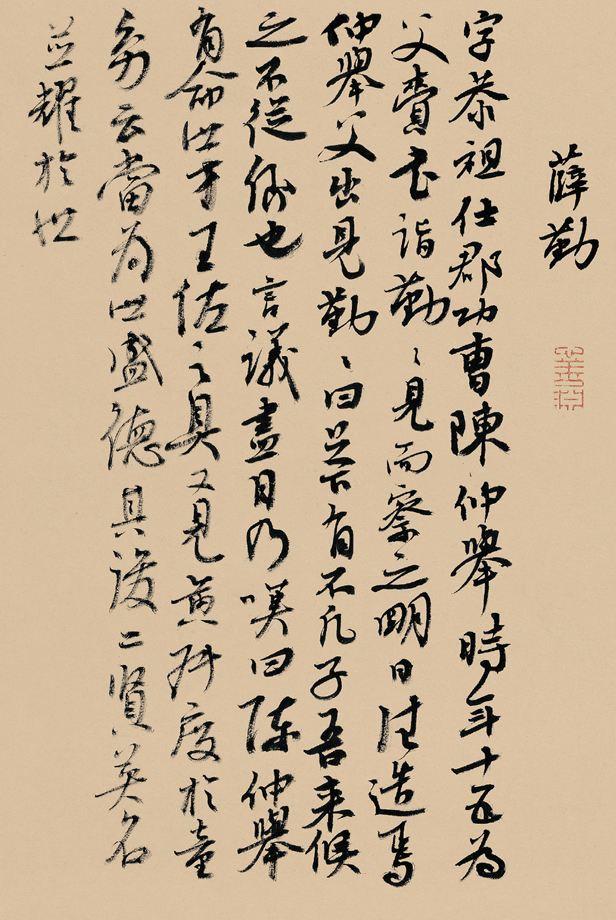 薛勤
字恭祖仕郡功曹陳仲舉時年十五為
父賫書詣勤〻見而察之明日往造焉
仲舉父出見勤〻曰足下有不凡子吾来候
之不從卿也言議盡日乃嘆曰陳仲舉
有命世才王佐之具又見黃叔度於童
幼云當為世盛德其後二賢英名
並耀於世